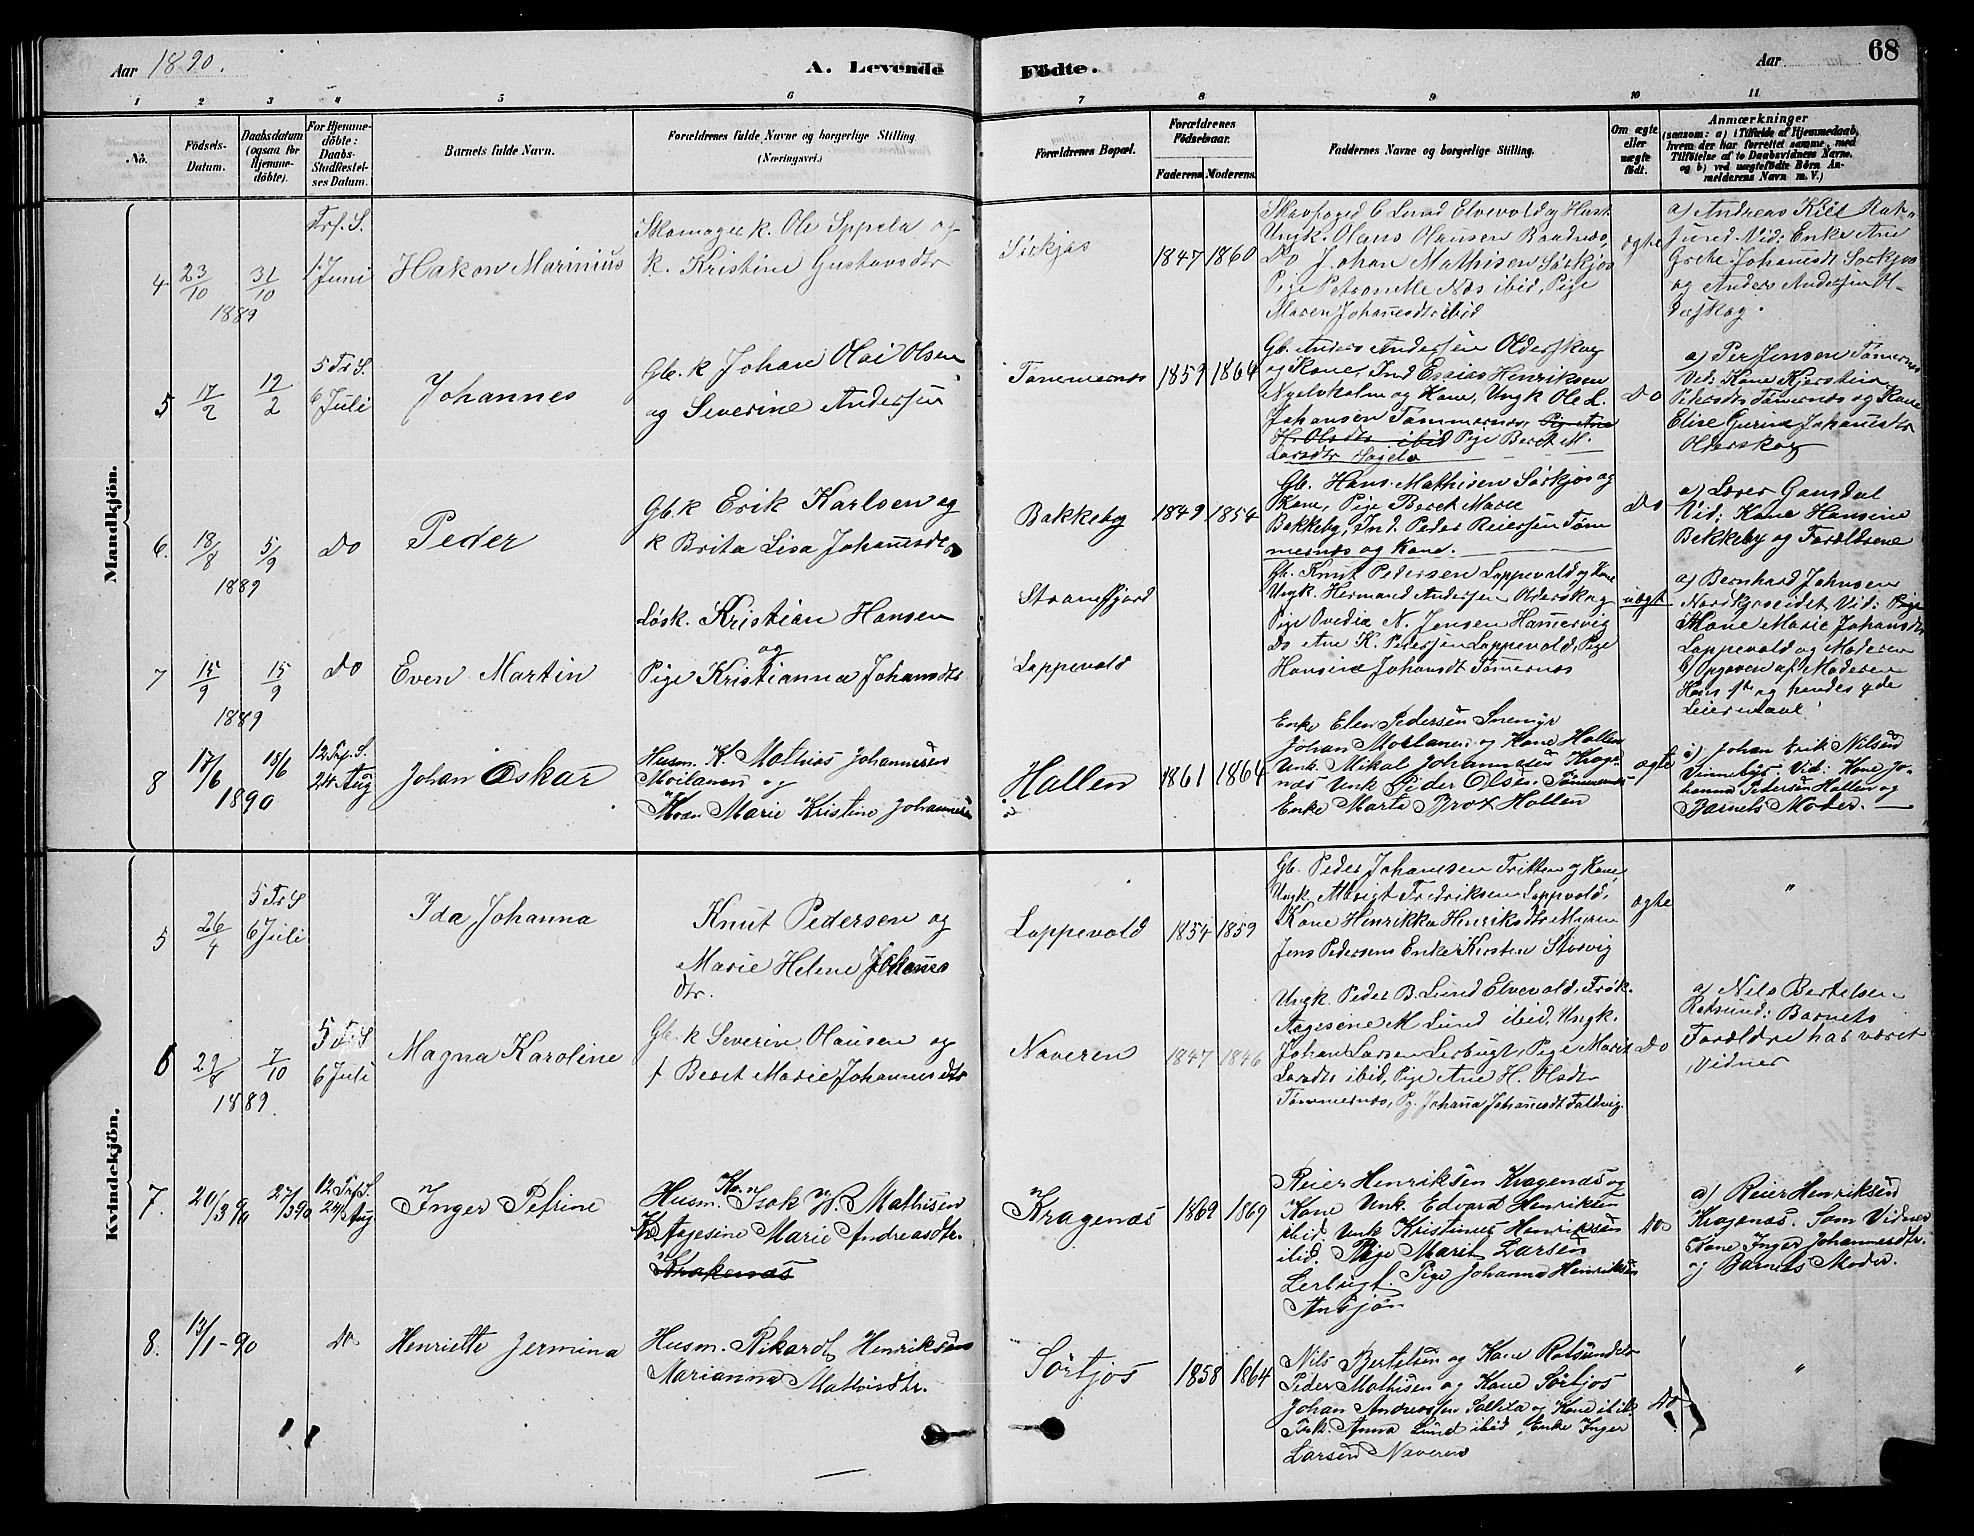 Aar 1890.
A. Levende Födte.
Aar
68
1 2 3 4 5 6 7 8 9 10 11
No.
Födsels-Datum.
Daabsdatum (ogsaa for Hjemme-döbte).
For Hjemme-döbte: Daabs-Stadfæstel-ses Datum.
Barnets fulde Navn.
Forældrenes fulde Navne og borgerlige Stilling.
(Næringsvei.)
Forældrenes Bopæl.
Forældrenes Födselsaar.
Faderens Moderens
Faddernes Navne og borgerlige Stilling.
Om ægte eller uægte födt.
Anmærkninger
(saasom: a) i Tilfælde af Hjemmedaab, hvem der har forrettet samme, med Tilföielse af to Daabsvidners Navne, og b) ved uægtefödte Börn Anmelderens Navn m. V.)
Mandkjön.
4 23/10 31/10 1889
Trf. S.
1 Juni
Hakon Marinius
k. Ole Sppela og
k. Kristine Gustavsdtr
Sörkjos
1847 1860
C Lund Elvevold og Hust.
Ungk. Hans Olausen Baadnæs,
Do Johan Mathisen Sörkjos
Pige Petronelle Næs ibid, Pige
Maren Johanesdtr ibid
ægte
a) Andreas Kiil Rot-
sund. Vid: Enke Ane
Grete Johanesdt Sörkjos
og Anders Andersen Ol-
derskog.
5 17/2 12/2
5 Tr S.
6 Juli
Johannes
Gb. k Johan Olai Olsen
og Severine Andersen
Tömmernæs
1859 1864
Gb. Anders Andersen Olderskog
og Kone, Ind Esaias Henriksen
Nyelvholm og Kone, Ungk Ole L.
Johansen Tömmernæs, Pige Ane
H. Olsdtr ibid Pige Beret M.
Larsdtr Sagelv
Do
a) Per Jensen Tömernæs
Vid: Kone Kjerstein
Pedersdtr Tömernæs og Kone
Elise Gurine Johanesdtr
Olderskog
6. 18/8 5/9 1889
Do
Peder
Gb k Erik Karlsen og
k Brita Lisa Johanesdtr
Bakkeby
1849 1854
Gb. Hans Mathisen Sörkjos og
Kone, Pige Beret Marie
Bakkeby, Ind. Peder Reiersen Töm
mernæs og Kone.
Do
a) Lærer Gausdal
Vid: Kone Hansine
Bakkeby og Forældrene
7 15/9 15/9 1889
Do
Even Martin
Lösk. Kristian Hansen
og
Pige Kristianna Johansdtr
Straumfjord
Lappevold
Gb. Knut Pedersen Lappevold og Kone
Ungk. Hermand Andersen Olderskog
Pige Ovedia N. Jensen Hamervig
Do Ane K. Pedersen Lappevold, Pige
Hansine Johansdt Tömernæs
uægt
a) Bernhard Johnsen
Nordkjoseidet Vid: Pige
Kone Marie Johansdtr
Lappevold og Moderen
b) Opgaven af Moderen
Hans 1ste og hendes 4de
Leiermaal
8 17/6 18/6 1890
12 Trf. S.
24 Aug
Johan Oskar
Husm. K. Mathias Johannesen
Moilanen og
Marie Kristine Johannesen
Hallen
1861 1864
Enke Elen Pedersen Snemyr
Johan Moilanen og Kone Hallen
Unk. Mikal Johannesen Krage
næs Unk Peder Olsen Tömmernæs
Enke Marta Brox Hallen
ægte
a) Johan Erik Nilsen
Vinnelys. Vid: Kone Jo-
hanna Pedersen Hallen og
Barnets Moder.
Kvindekjön.
5 26/4
5 Tr S
6 Juli
Ida Johanna
Knut Pedersen og
Marie Helene Johanes
dtr.
Lappevold
1854 1859
Gb. Peder Johansen Fritten og Kone,
Ungk Albrigt Fredriksen Lappvold,
Kone Henrikka Henriksdtr Myren
Jens Pedersens Enke Kirsten Storvig
ægte
"
6 29/8 7/10 1889.
5 Tr. S
6 Juli
Magna Karoline
Gb. k Severin Olausen og
Beret Marie Johannesdtr
Naveren
1847 1846
Ungk. Peder B. Lund Elvevold, Frök.
Aagesine M Lund ibid, Ungk.
Johan Larsen Lerbugt, Pige Marit
Larsdtr ibid, Pige Ane H. Olsdtr
Tömmernæs, Pg. Johana Johanesdt Taldvig.
Do
a) Nils Bertelsen
Rotsund: Barnets
Forældre har været
Vidner
7. 20/3 90 27/3 90
12 Trf. S.
24/Aug
Inger Petrine
Husm. Kv. Isak P. Mathisen
K. Aagesine Marie Andreasdtr.
Krakenæs
Kragenæs
1869 1869
Reier Henriksen Kragenæs og
Kone Unk. Edvard Henriksen
ibid. Unk Kristinus Henriksen
ibid. Pige Marit Larsen
Lerbugt. Pige Johanna Henriksen
Ansjön
Do
a) Reier Henriksen
Kragenæs. Som Vidner
Kone Inger Johannesdtr.
og Barnets Moder.
8. 13/1-90
Do
Henriette Jermina
Husm. Rikardt Henriksen
Marianna Mathisdtr.
Sörkjos
1858 1864
Nils Bertelsen og Kone Rotsundelv
Peder Mathisen og Kone Sörkjos
Johan Andreassen Sallita og Kone ibid,
Frk. Anna Lund ibid, Enke Inger
Larsen Naveren
Do
"